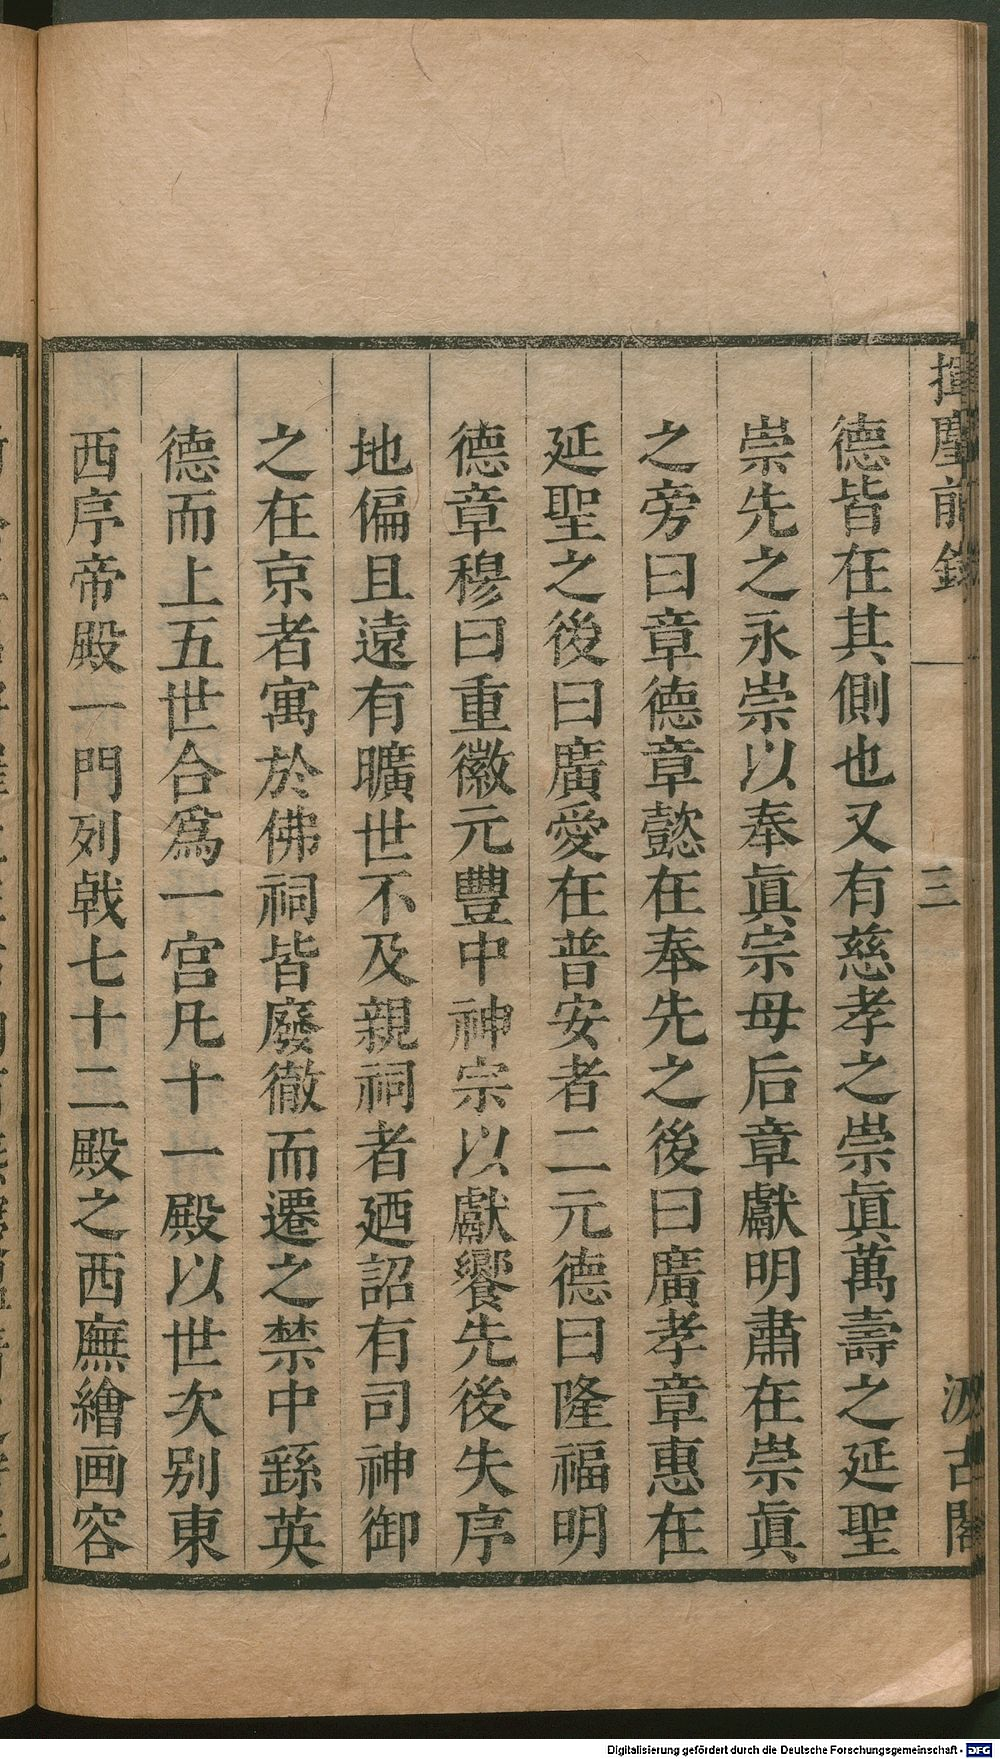 揮麈前錄
三
汲古閣
德皆在其側也又有慈孝之崇眞萬壽之延聖
崇先之永崇以奉眞宗母后章獻明肅在崇眞
之旁曰章德章懿在奉先之後曰廣孝章惠在
延聖之後曰廣愛在普安者二元德曰隆福明
德章穆曰重徽元豐中神宗以獻饗先後失序
地偏且遠有曠世不及親祠者廼詔有司神御
之在京者寓於佛祠皆廢徹而遷之禁中繇英
德而上五世合爲一宮凡十一殿以世次別東
西序帝殿一門列戟七十二殿之西廡繪画容
Digitalisierung gefördert durch die Deutsche Forschungsgemeinschaft - DFG